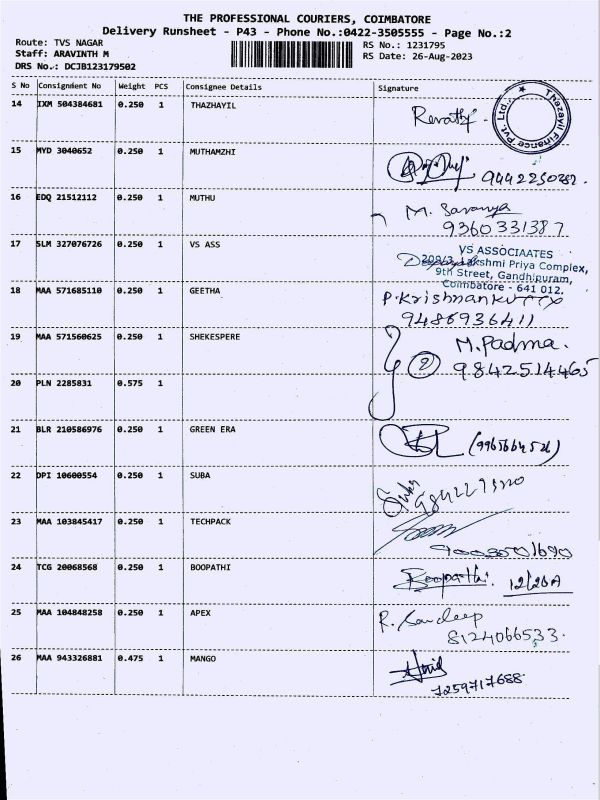 THE PROFESSIONAL COURIERS, COIMBATORE
Delivery Runsheet - P43 - Phone No.:0422-3505555 - Page No.:2
Route: TVS NAGAR RS No.: 1231795
Staff: ARAVINTH M RS Date: 26-Aug-2023
DRS No.: DCJB123179502
S No Consignment No Weight PCS Consignee Details Signature
14 IXM 504384681 0.250 1 THAZHAYIL Revathy
Thazhayil Finance Pvt. Ltd.
15 MYD 3040652 0.250 1 MUTHAMZHI
16 EDQ 21512112 0.250 1 MUTHU M. Saranya
9360331387
17 SLM 327076726 0.250 1 VS ASS VS ASSOCIAATES
209/3, Lakshmi Priya Complex,
9th Street, Gandhipuram,
Coimbatore - 641 012.
18 MAA 571685110 0.250 1 GEETHA P. Krishnankutty
9486936411
19 MAA 571560625 0.250 1 SHEKESPERE M. Padma.
2 9842514465
20 PLN 2285831 0.575 1
21 BLR 210586976 0.250 1 GREEN ERA
22 DPI 10600554 0.250 1 SUBA Suba
23 MAA 103845417 0.250 1 TECHPACK
24 TCG 20068568 0.250 1 BOOPATHI Boopathi. 12/26A
25 MAA 104848258 0.250 1 APEX R. Sandeep
8124066533.
26 MAA 943326881 0.475 1 MANGO
7259717688